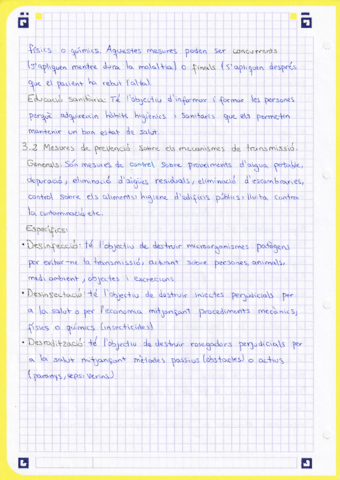 físics o químics. Aquestes mesures poden ser concurrents
(s'apliquen mentre dura la malaltia) o finals (s'apliquen després
que el pacient ha rebut l'alta).
Educació sanitària: Té l'objectiu d'informar i formar les persones
perquè adquireixin hàbits higiènics i sanitaris que els permetin
mantenir un bon estat de salut.
3.2 Mesures de prevenció sobre els mecanismes de transmissió.
Generals: Són mesures de control sobre proveïments d'aigua potable,
depuració, eliminació d'aigües residuals, eliminació d'escombraries,
control sobre els aliments; higiene d'edificis públics; lluita contra
la contaminació, etc.
Específics:
• Desinfecció: té l'objectiu de destruir microorganismes patògens
per evitar-ne la transmissió, actuant sobre persones, animals,
medi ambient, objectes i excrecions
• Desinsectació: té l'objectiu de destruir insectes perjudicials per
a la salut o per l'economia mitjançant procediments mecànics,
físics o químics (insecticides)
• Desratització: té l'objectiu de destruir rosegadors perjudicials per
a la salut mitjançant mètodes passius (obstacles) o actius
(paranys, verins)